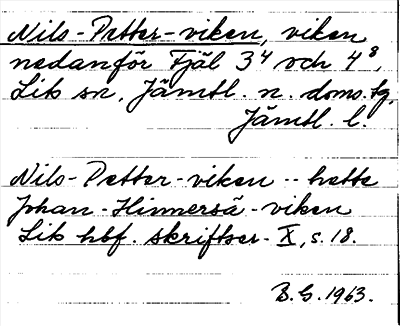 Nils-Petter-viken, viken
nedanför Fjäl 3⁴ och 4⁸,
Lit sn, Jämtl. n. doms. tg,
Jämtl. l.
Nils-Petter-viken -- hette
Johan-Hinnerså-viken
Lit hbf. skriftser. X, s. 18.
B.G. 1963.